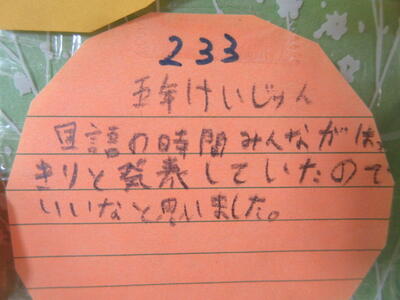 233
五年けいじゅん
国語の時間みんながはっ
きりと発表していたので
いいなと思いました。